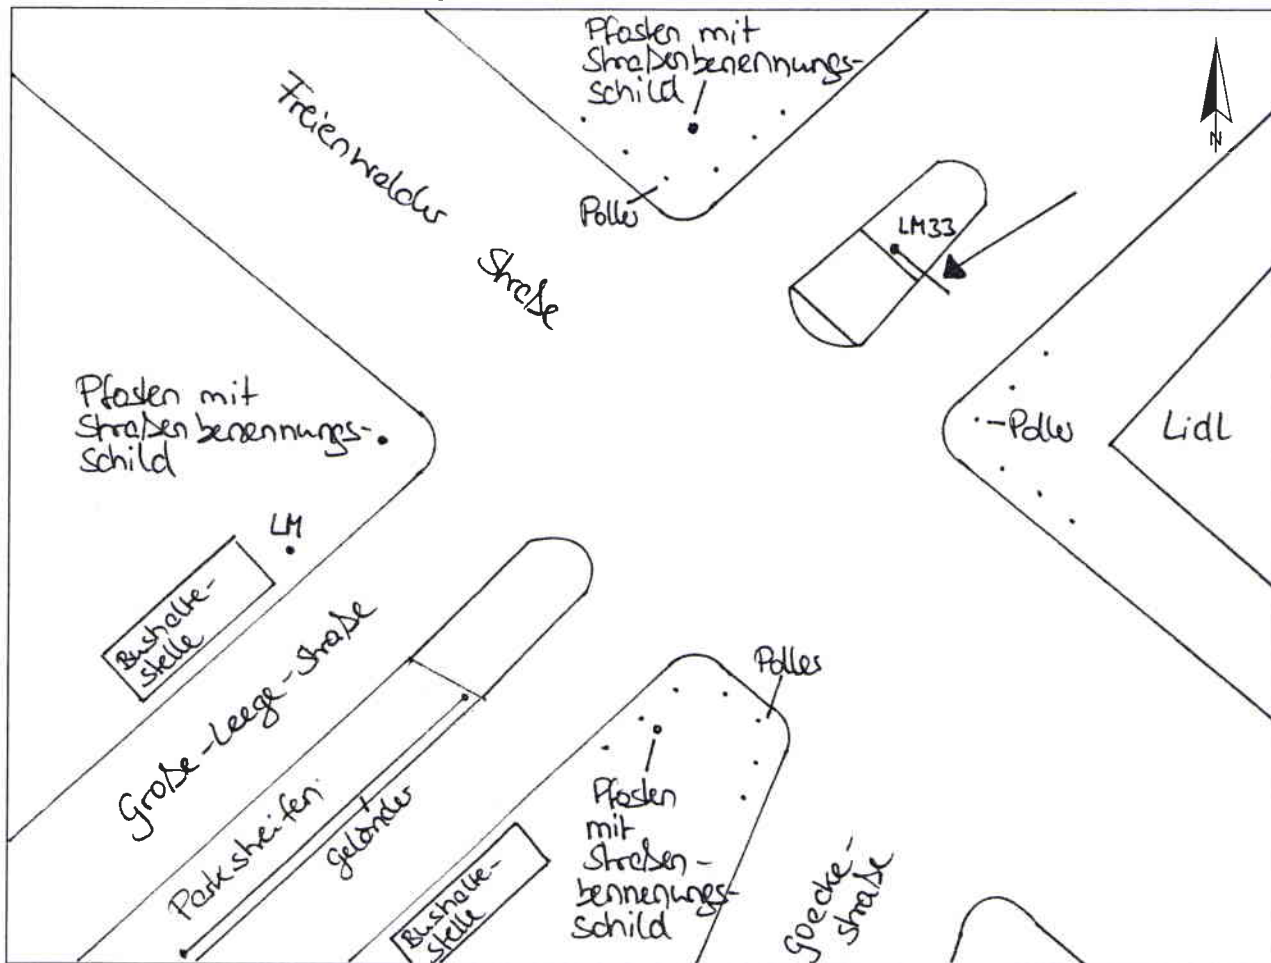 Pfosten mit
Straßenbenennungs-
schild
N
Freienwalder
Straße
Poller
LM33
Pfosten mit
Straßenbenennungs-
schild
Poller
Lidl
LM
Bushalte-
stelle
Große-Leege-Straße
Poller
Parkstreifen
Geländer
Pfosten
mit
Straßen-
bennenungs-
schild
Bushalte-
stelle
Goecke-
straße